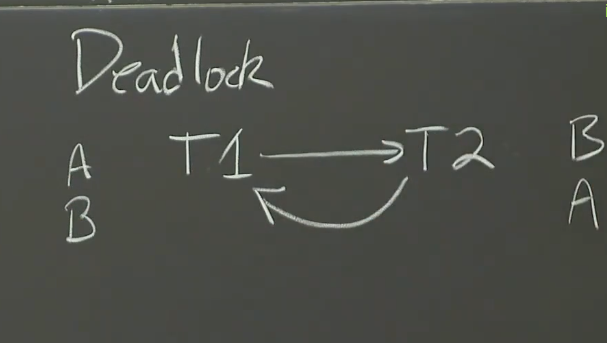 Deadlock
A T1 T2 B
B A